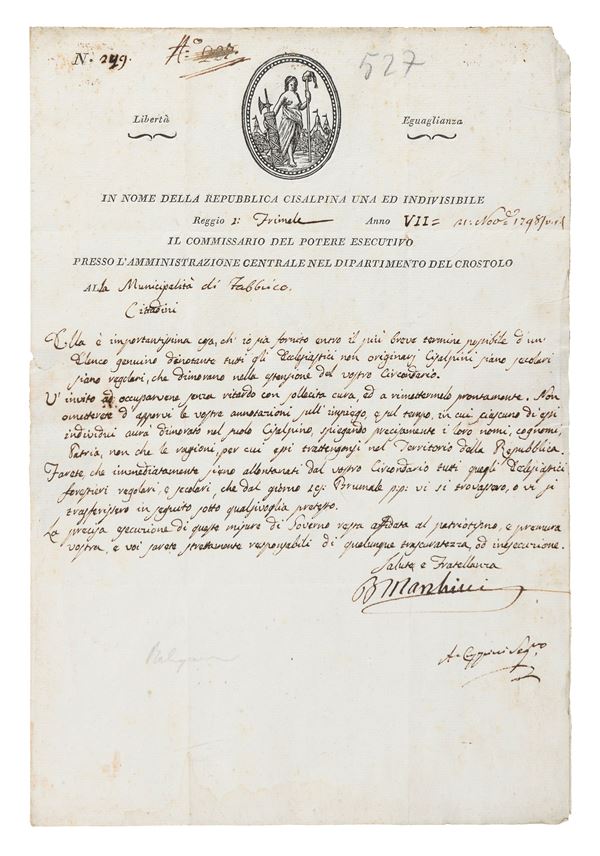 N.° 249.
A.°
527
Libertà Eguaglianza
IN NOME DELLA REPUBBLICA CISALPINA UNA ED INDIVISIBILE
Reggio 1: Frimele Anno VII = 21: Nov.e 1798
IL COMMISSARIO DEL POTERE ESECUTIVO
PRESSO L'AMMINISTRAZIONE CENTRALE NEL DIPARTIMENTO DEL CROSTOLO
ALla Municipalità di Fabbrico.
Cittadini
Ella è importantissima cosa, ch' io sia fornito entro il più breve termine possibile d'un
Elenco genuino denotante tutti gli Eclesiastici non originarj Cisalpini siano secolari
siano regolari, che dimorano nella estensione del vostro Circondario.
V' invito ad occuparvene senza ritardo con sollecita cura, ed a rimettermelo prontamente. Non
ometterete d' apporvi le vostre annotazioni sull' impiego, e sul tempo, in cui ciascuno di essi
individui aurà dimorato nel suolo Cisalpino, spiegando precisamente i loro nomi, cognomi,
Patria, non che le ragioni, per cui essi trattengonsi nel Territorio della Repubblica.
Farete, che immediatamente sieno allontanati dal vostro Circondario tutti quegli Eclesiastici
forestieri regolari, e secolari, che dal giorno 19: Brumale p:p: vi si trovassero, o vi si
trasferissero in seguito sotto qualsivoglia pretesto.
La precisa esecuzione di queste misure di Governo resta affidata al patriotismo, e premura
vostra, e voi sarete strettamente responsabili di qualunque trascuratezza, od inesecuzione.
Salute e Fratellanza